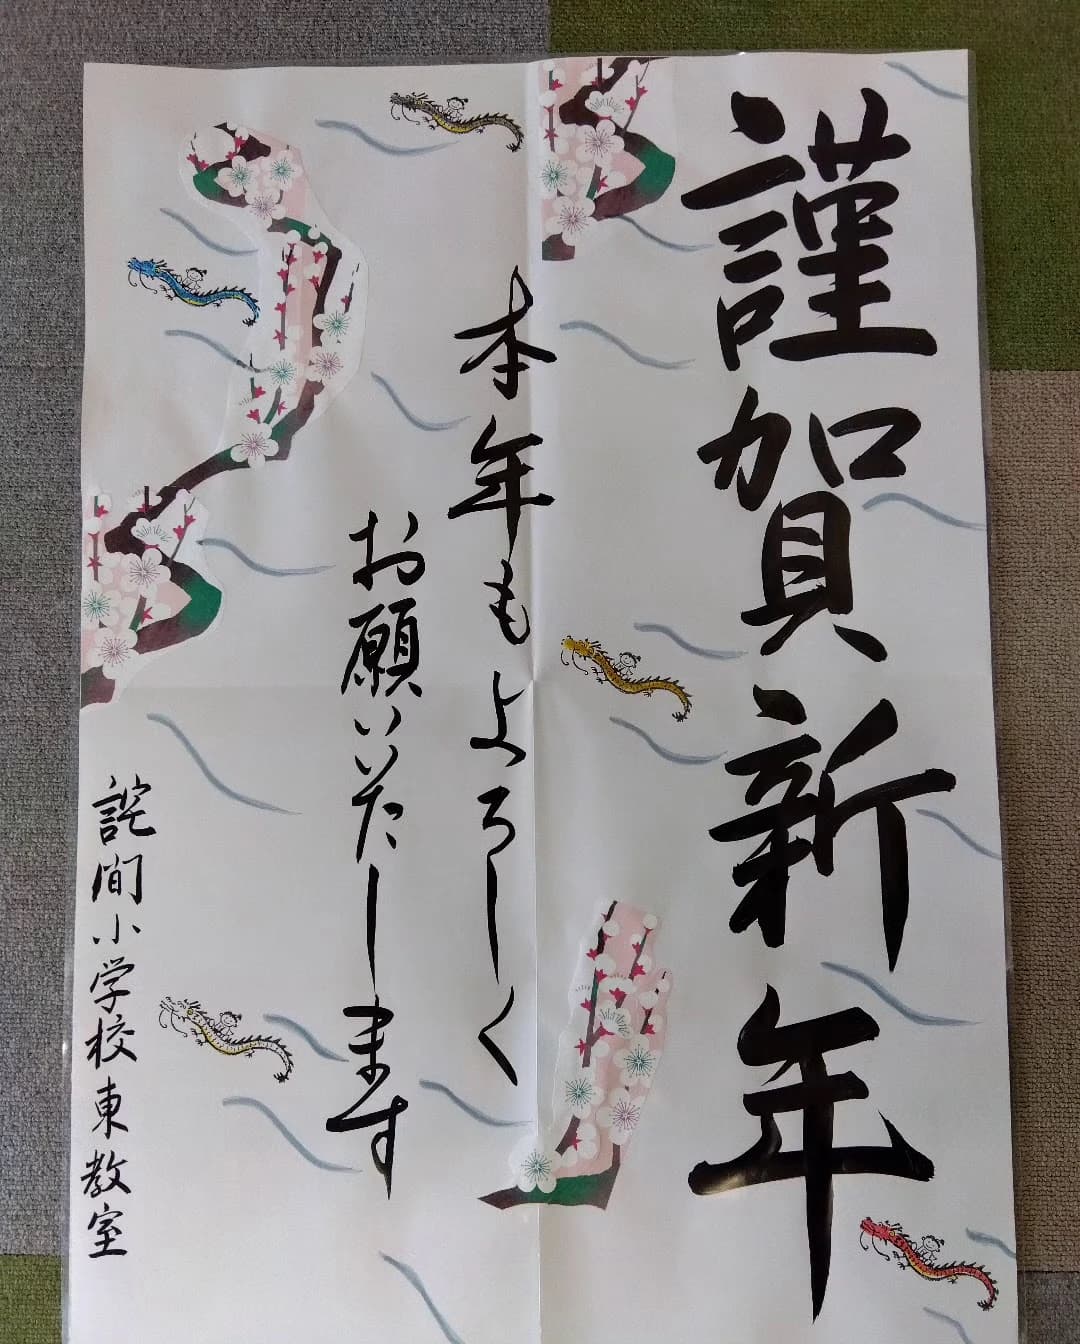 謹賀新年
本年もよろしく
お願いいたします
詫間小学校東教室